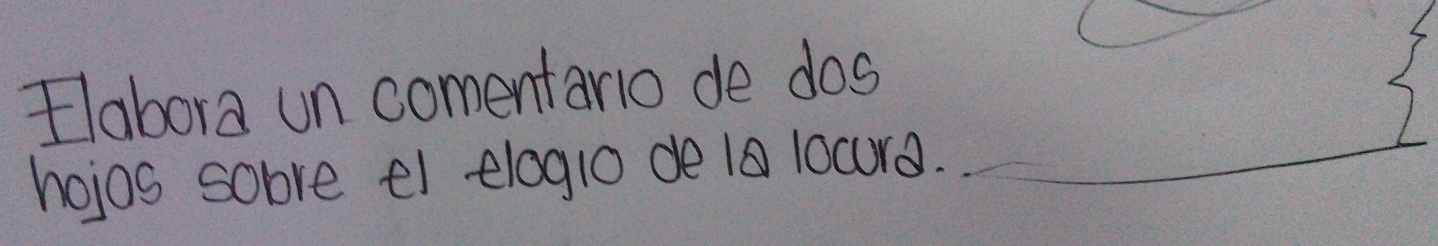 Elabora un comentario de dos
hojas sobre el elogio de la locura..